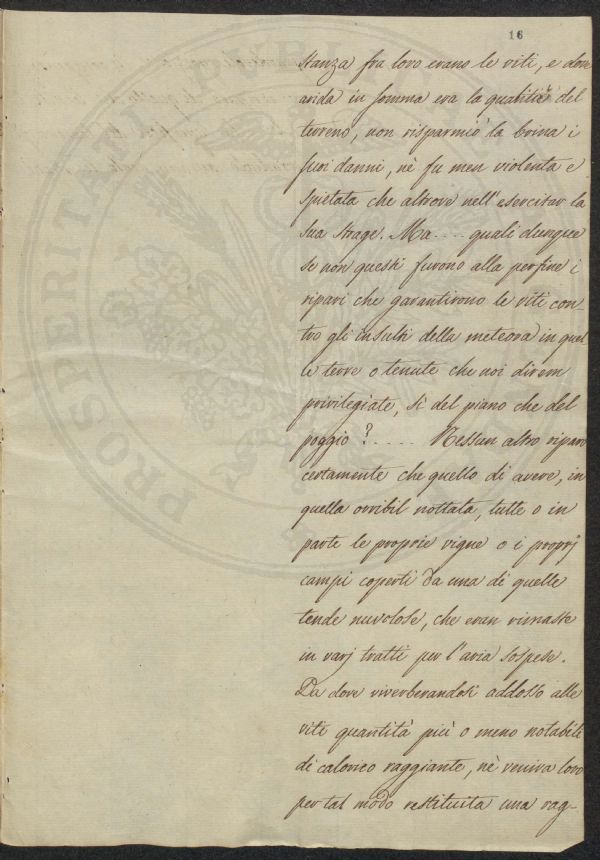 16
stanza fra loro erano le viti, e dove
arida in somma era la qualità del
terreno, non risparmiò la brina i
suoi danni, nè fu men violenta e
spietata che altrove nell'esercitar la
sua strage. Ma .... quali dunque
se non questi furono alla perfine i
ripari che garantirono le viti con-
tro gli insulti della meteora in quel
le terre o tenute che noi direm
privilegiate, sì del piano che del
poggio? ..... Nessun altro riparo
certamente che quello di avere, in
quella orribil nottata, tutte o in
parte le proprie vigne o i proprj
campi coperti da una di quelle
tende nuvolose, che eran rimaste
in varj tratti per l'aria sospese.
Da dove riverberandosi addosso alle
viti quantità più o meno notabili
di calorico raggiante, nè veniva loro
per tal modo restituita una rag-
PROSPERITATI PUBLICAE